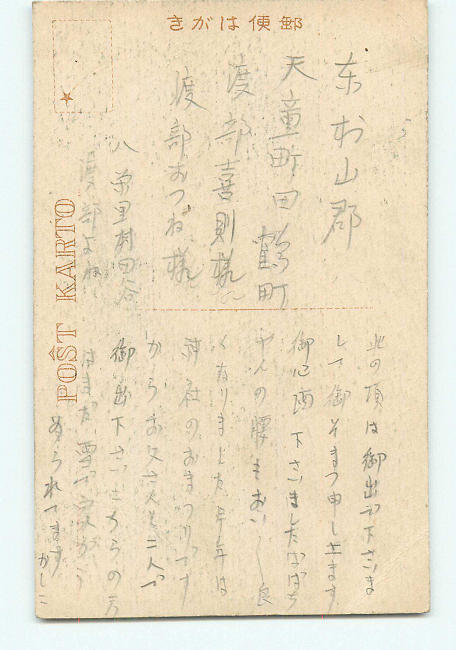 郵便はがき
POŜT KARTO
東村山郡
天童町田鶴町
渡部喜則様
渡部おつね様
八栄里村田谷
渡部よね
此の頃は御出で下さま
して御そまつ申し上ます
御心 下さいましたなばち
やんの腰もおい〱良
くなりました今年は
神社のおまつりです
からお父さんと二人で
御出下さいこちらの方
はまだ雪で
められてます
かしこ